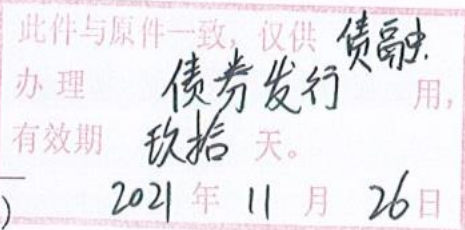 此件与原件一致,仅供 债融
办理 债券发行 用,
有效期 玖拾 天。
2021年11月26日